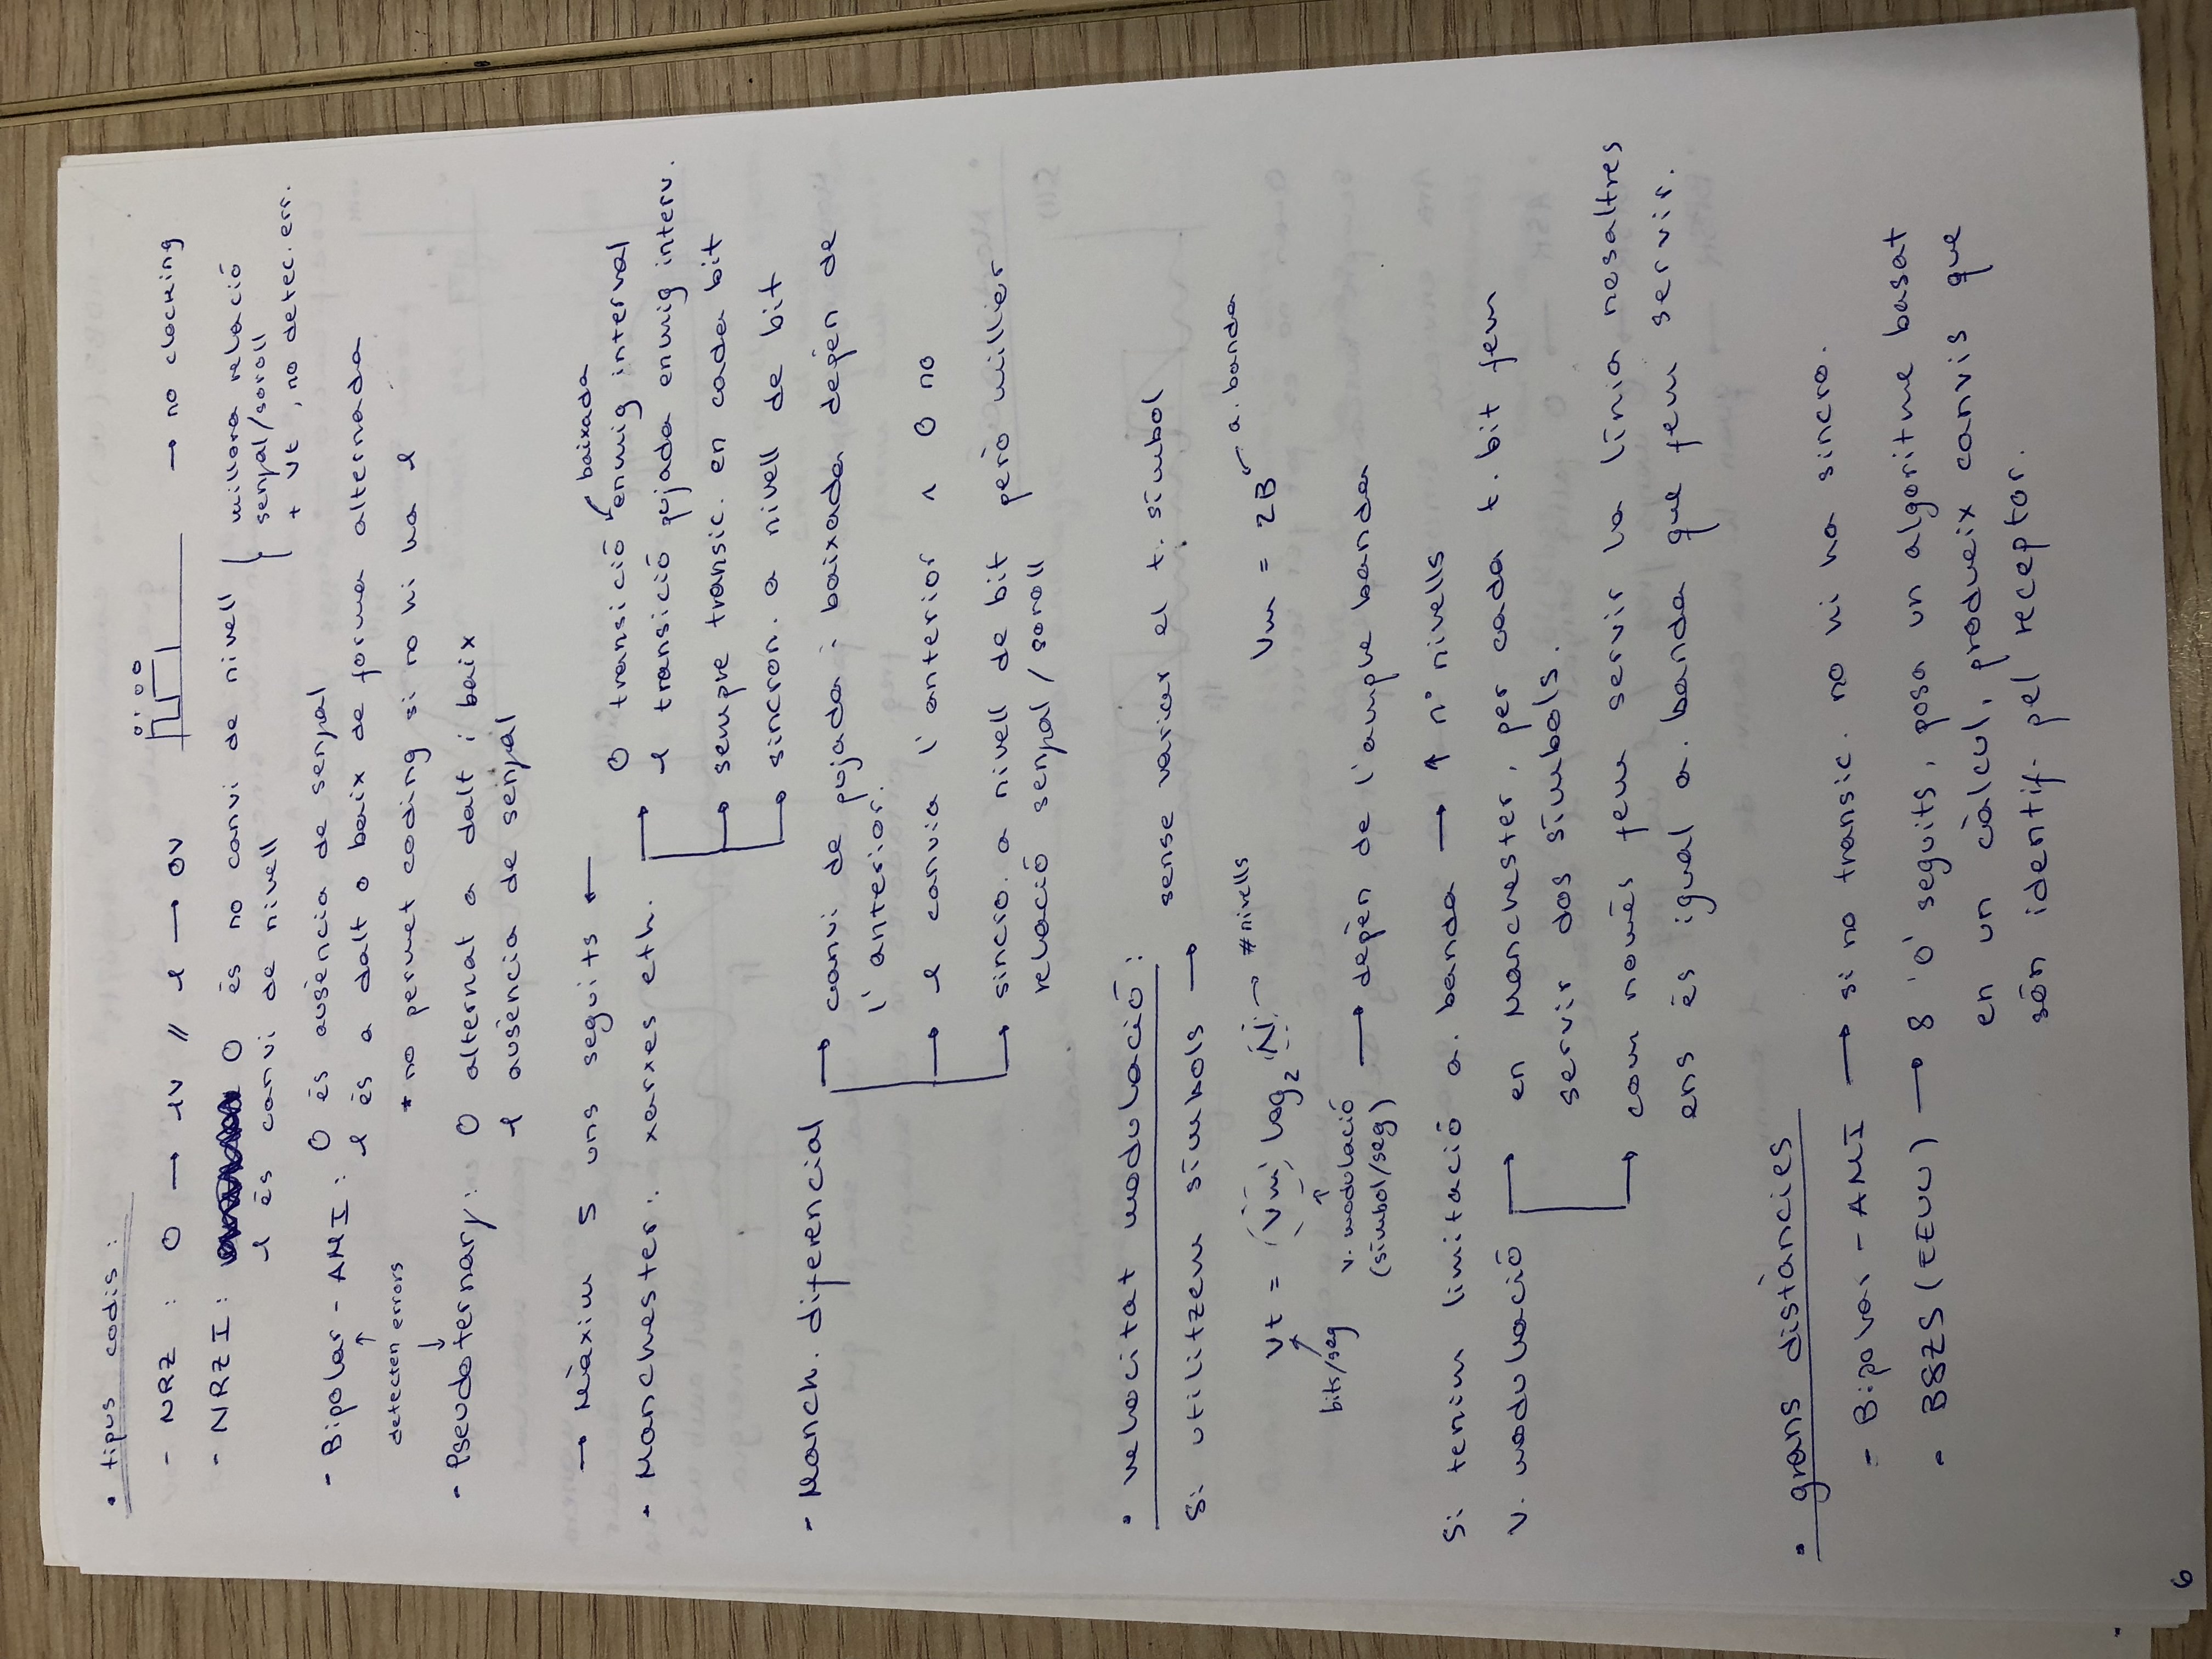 • tipus codis :
- NRZ : 0 → 1V // 1 → 0V 0100 → no clocking
- NRZI : 0 és no canvi de nivell
1 és canvi de nivell
millora relació
senyal/soroll
+ Vt , no detec. err.
- Bipolar - AMI : 0 és ausència de senyal
1 és a dalt o baix de forma alternada
↑
detecten errors
↓
* no permet coding si no hi ha 1
- Pseudoternary : 0 alternat a dalt i baix
1 ausència de senyal
→ Màxim 5 uns seguits ←
- Manchester : xarxes eth. → 0 transició baixada enmig interval
1 transició pujada enmig interv.
→ sempre transic. en cada bit
→ sincron. a nivell de bit
- Manch. diferencial → canvi de pujada i baixada depèn de
l'anterior.
→ 1 canvia l'anterior ∧ 0 no
→ sincro. a nivell de bit però millor
relació senyal / soroll
• velocitat modulació :
Si utilitzem símbols → sense variar el t. símbol
Vt = Vm log₂ N → #nivells
Vm = 2B a. banda
bits/seg
v. modulació
(símbol/seg) → depèn de l'ample banda
Si tenim limitació a. banda → ↑ nº nivells
V. modulació → en Manchester, per cada t. bit fem
servir dos símbols.
→ com només fem servir la línia nosaltres
ens és igual a. banda que fem servir.
• grans distàncies
- Bipolar - AMI → si no transic. no hi ha sincro.
- B8ZS (EEUU) → 8 '0' seguits, posa un algoritme basat
en un càlcul, produeix canvis que
són identif. pel receptor.
6